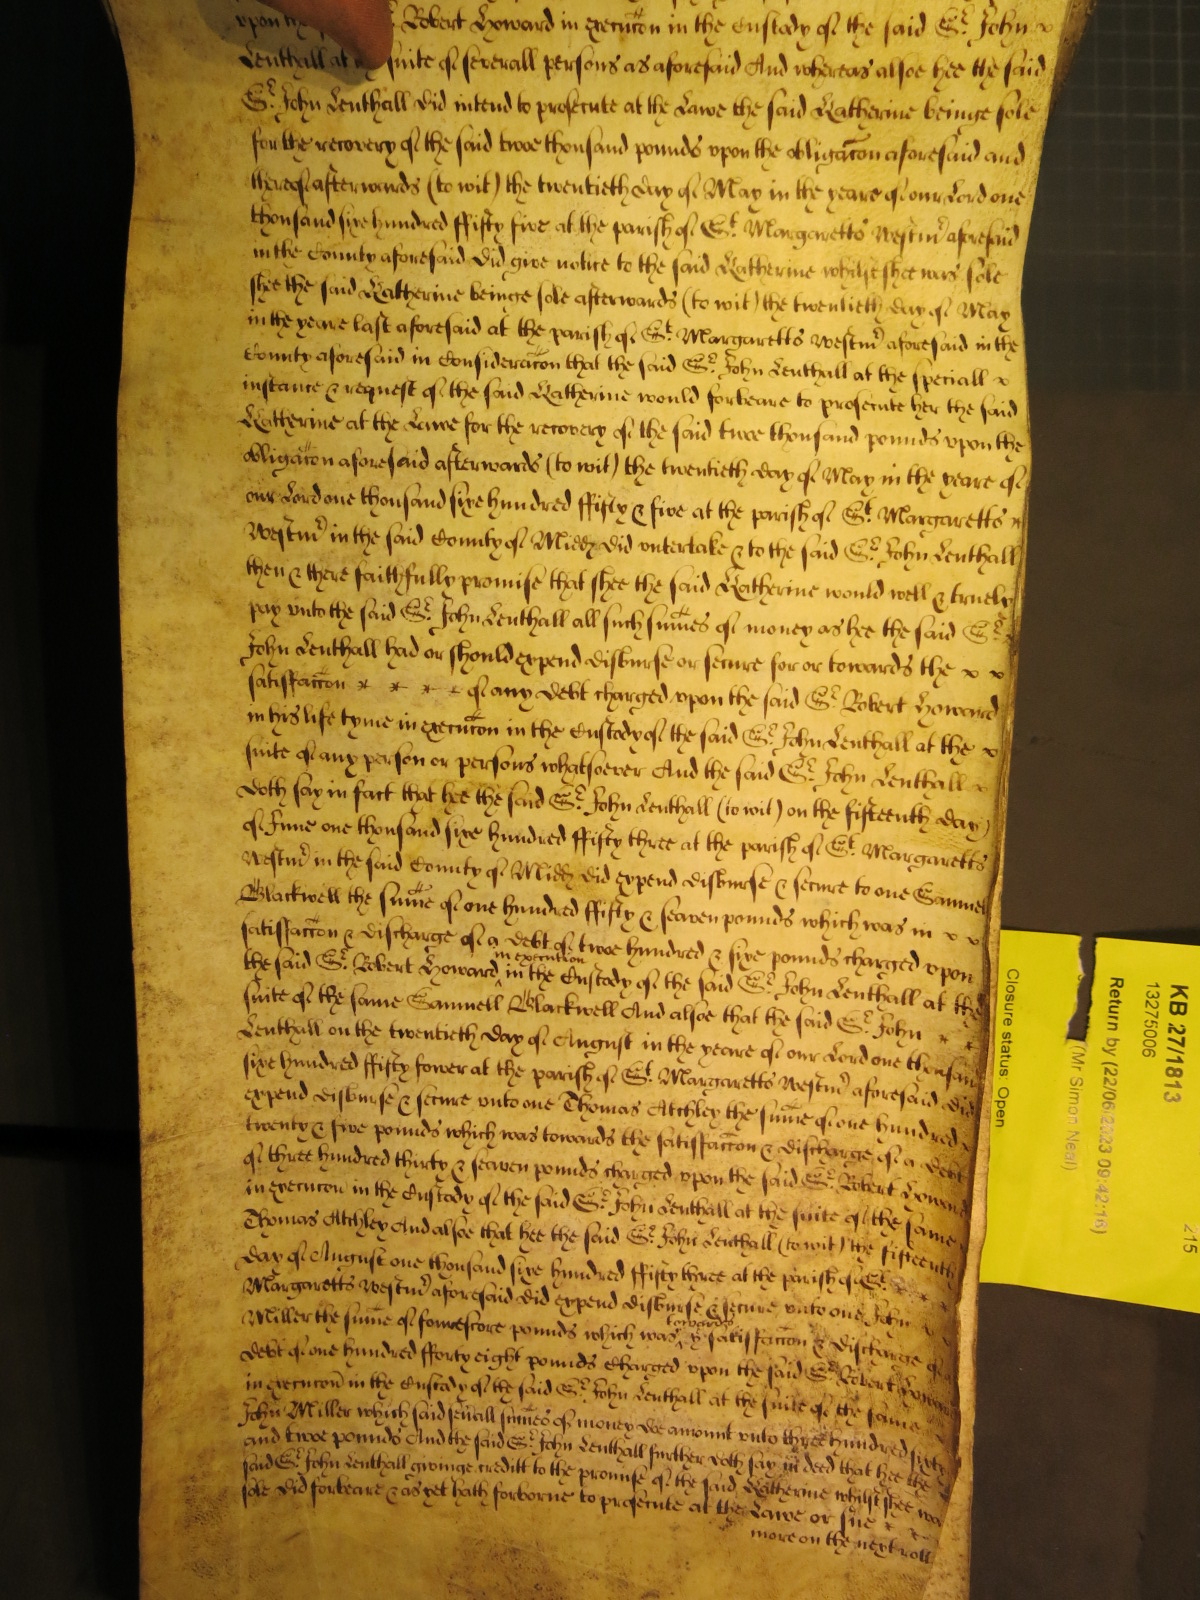 vpon the Sr. Robert Howard in execucon in the Custody of the said Sr. John x
Lenthall at suite of severall persons as aforesaid And whereas alsoe hee the said
Sr. John Lenthall did intend to prosecute at the Lawe the said Katherine beinge sole
for the recovery of the said twoe thousand pounds vpon the obligacon aforesaid and
thereof afterwards (to wit) the twentieth day of May in the yeare of our Lord one
thousand sixe hundred ffifty five at the parish of St. Margaretts Westmr aforesaid
in the County aforesaid did give notice to the said Katherine whilst shee was sole
shee the said Katherine beinge sole afterwards (to wit) the twentieth day of May
in the yeare last aforesaid at the parish of St. Margaretts Westmr aforesaid in the
County aforesaid in Consideracon that the said Sr. John Lenthall at the speciall x
instance & request of the said Katherine would forbeare to prosecute her the said
Katherine at the Lawe for the recovery of the said twoe thousand pounds vpon the
obligacon aforesaid afterwards (to wit) the twentieth day of May in the yeare of
our Lord one thousand sixe hundred ffifty & five at the parish of St. Margaretts x
Westmr in the said County of Midd did vntertake & to the said Sr. John Lenthall
then & there faithfully promise that shee the said Katherine would well & truely
pay vnto the said Sr. John Lenthall all such sumes of money as hee the said Sr.
John Lenthall had or should expend disburse or secure for or towards the x x
satisfaccon x x x x of any debt charged vpon the said Sr. Robert Howard
in his life tyme in execucon in the Custody of the said Sr. John Lenthall at the x
suite of any person or persons whatsoever And the said Sr. John Lenthall x
doth say in fact that hee the said Sr. John Lenthall (to wit) on the fifteenth day
of June one thousand sixe hundred ffifty three at the parish of St. Margaretts
Westmr in the said County of Midd did expend disburse & secure to one Samuel
Blackwell the sume of one hundred ffifty & seaven pounds which was in x x
satisfaccon & discharge of a debt of twoe hundred & sixe pounds charged vpon
the said Sr. Robert Howard ^in execution in the Custody of the said Sr. John Lenthall at the
suite of the same Samuell Blackwell And alsoe that the said Sr. John x x
Lenthall on the twentieth day of August in the yeare of our Lord one thousand
sixe hundred ffifty fower at the parish of St. Margaretts Westmr aforesaid did
expend disburse & secure vnto one Thomas Atchley the sume of one hundred x
twenty & five pounds which was towards the satisfaccon & discharge of a debt
of three hundred thirty & seaven pounds charged vpon the said Sr. Robert Howard
in execucon in the Custody of the said Sr. John Lenthall at the suite of the same
Thomas Atchley And alsoe that hee the said Sr. John Lenthall (to wit) the fifteenth
day of August one thousand sixe hundred ffifty three at the parish of St. x x x
Margaretts Westmr aforesaid did expend disburse & secure vnto one John x x
Miller the sume of fowrescore pounds which was ^towards ye satisfaccon & discharge of
debt of one hundred fforty eight pounds charged vpon the said Sr. Robert Howard
in execucon in the Custody of the said Sr. John Lenthall at the suite of the same
John Miller which said sevall sumes of money doe amount vnto three hundred sixty
and twoe pounds And the said Sr. John Lenthall further doth say in deed that hee the
said Sr. John Lenthall givinge creditt to the promise of the said Katherine whilst shee was
sole did forbeare & as yet hath forborne to prosecute at the Lawe or sue x x
more on the next roll
KB 27/1813
13275006
Return by (22/06/2023 09:42:16)
(Mr Simon Neal)
Closure status: Open
215